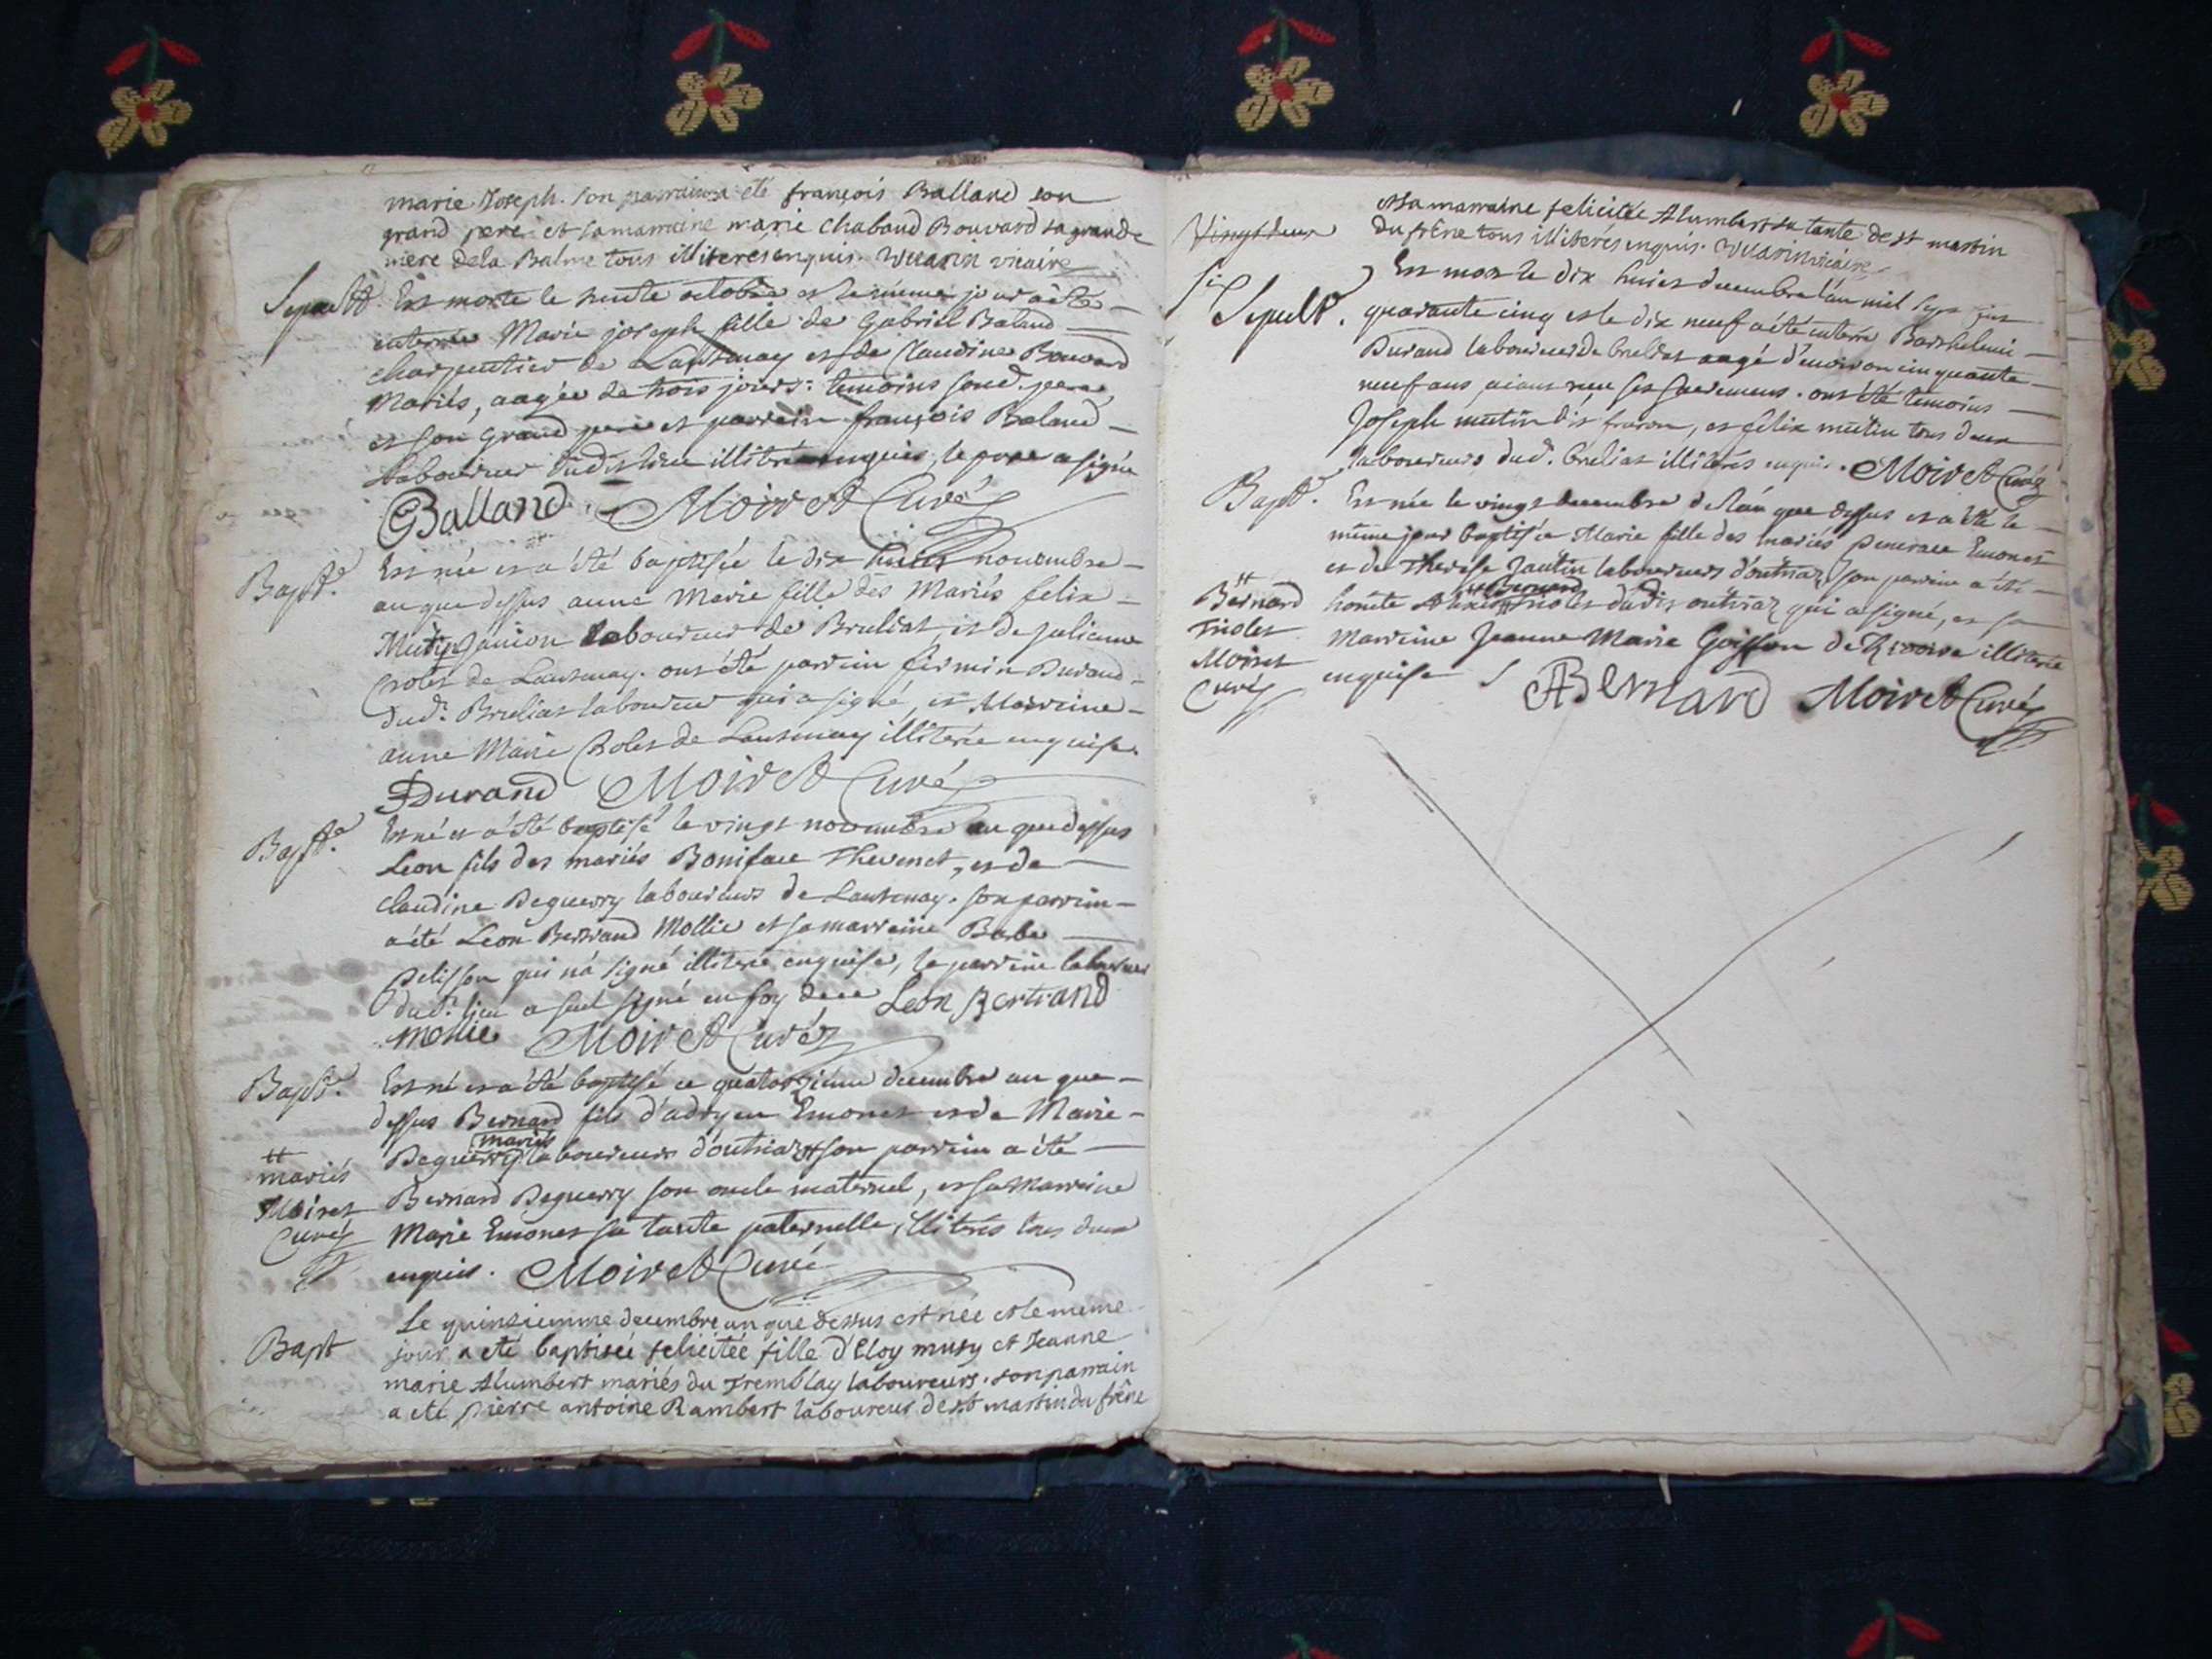 marie Joseph. son parrain a eté françois Balland son
grand pere et sa marraine marie chaband Bouvard sa grande
mere de la Balme tous illiteres enquis. Wuarin vicaire
Sepult. Est morte le trente octobre et le même jour a été
enterrée Marie joseph fille de Gabriel Baland
charpentier de Lantenay et de Claudine Bouvard
Mariés, aagée de trois jours: temoins sond. pere
et son grand pere et parrein françois Baland
laboureur dudit lieu illitré enquis, le pere a signé
Balland Moiret Curé
Bapt. Est née et a été baptisée le dix huit novembre
an que dessus anne Marie fille des Mariés felix
Mutin Junion laboureur de Bruliat, et de Julienne
Crolet de Lantenay. ont été parrein firmin Durand
dud. Bruliat laboureur qui a signé, et Marreine
anne Marie Crolet de Lantenay illiterée enquise.
Durand Moiret Curé
Bapt. Est né et a été baptisé le vingt novembre an que dessus
Leon fils des mariés Boniface Thevenet, et de
claudine Deguerry laboureurs de Lantenay. son parrein
a été Leon Bertrand Mollie et sa marreine Barbe
Pelisson qui n'a signé illiterée enquise, le parrein laboureur
dud. lieu a seul signé en foy de ce Leon Bertrand
mollie Moiret Curé
Bapt. Est né et a été baptisé ce quatorzieme decembre an que
dessus Bernard fils d'adryen Emonet et de Marie
mariés
Deguerry laboureurs d'outriaz son parrein a été
mariés
Moiret
Curé
Bernard Deguerry son oncle maternel, et sa Marreine
Marie Emonet sa tante paternelle, illitrés tous deux
enquis. Moiret Curé
Bapt Le quinsiemme decembre an que dessus est née et le meme
jour a eté baptiseé felicitée fille d'Eloy musy et Jeanne
marie Alumbert mariés du Tremblay laboureurs. son parrain
a eté pierre antoine Rambert laboureur de st martin du frêne
et sa marraine felicitée Alumbert sa tante de st martin
du frêne tous illiterés enquis. Wuarin vicaire
Vingt deux
Est mort le dix huict decembre l'an mil sept
Sepult. quarante cinq et le dix neuf a été enterré Barthelemi
Durand laboureur de bruliat aagé d'environ cinquante
neuf ans, aiant reçu ses sacremens. ont été temoins
Joseph mutin dit, et félix mutin tous deux
laboureurs dud. bruliat illitérés enquis. Moiret Curé
Bapt. Est née le vingt decembre de l'an que dessus et a été le
même jour baptisée Marie fille des mariés Emonet
et de Therese Jantin laboureurs d'outriaz, son parrein a été
Bernard
honête Triolet dudit outriaz qui a signé, et sa
Bernard
Triolet
Moiret
Curé
marreine Jeanne Marie Goiffon de illiterée
enquise ABernard Moiret Curé